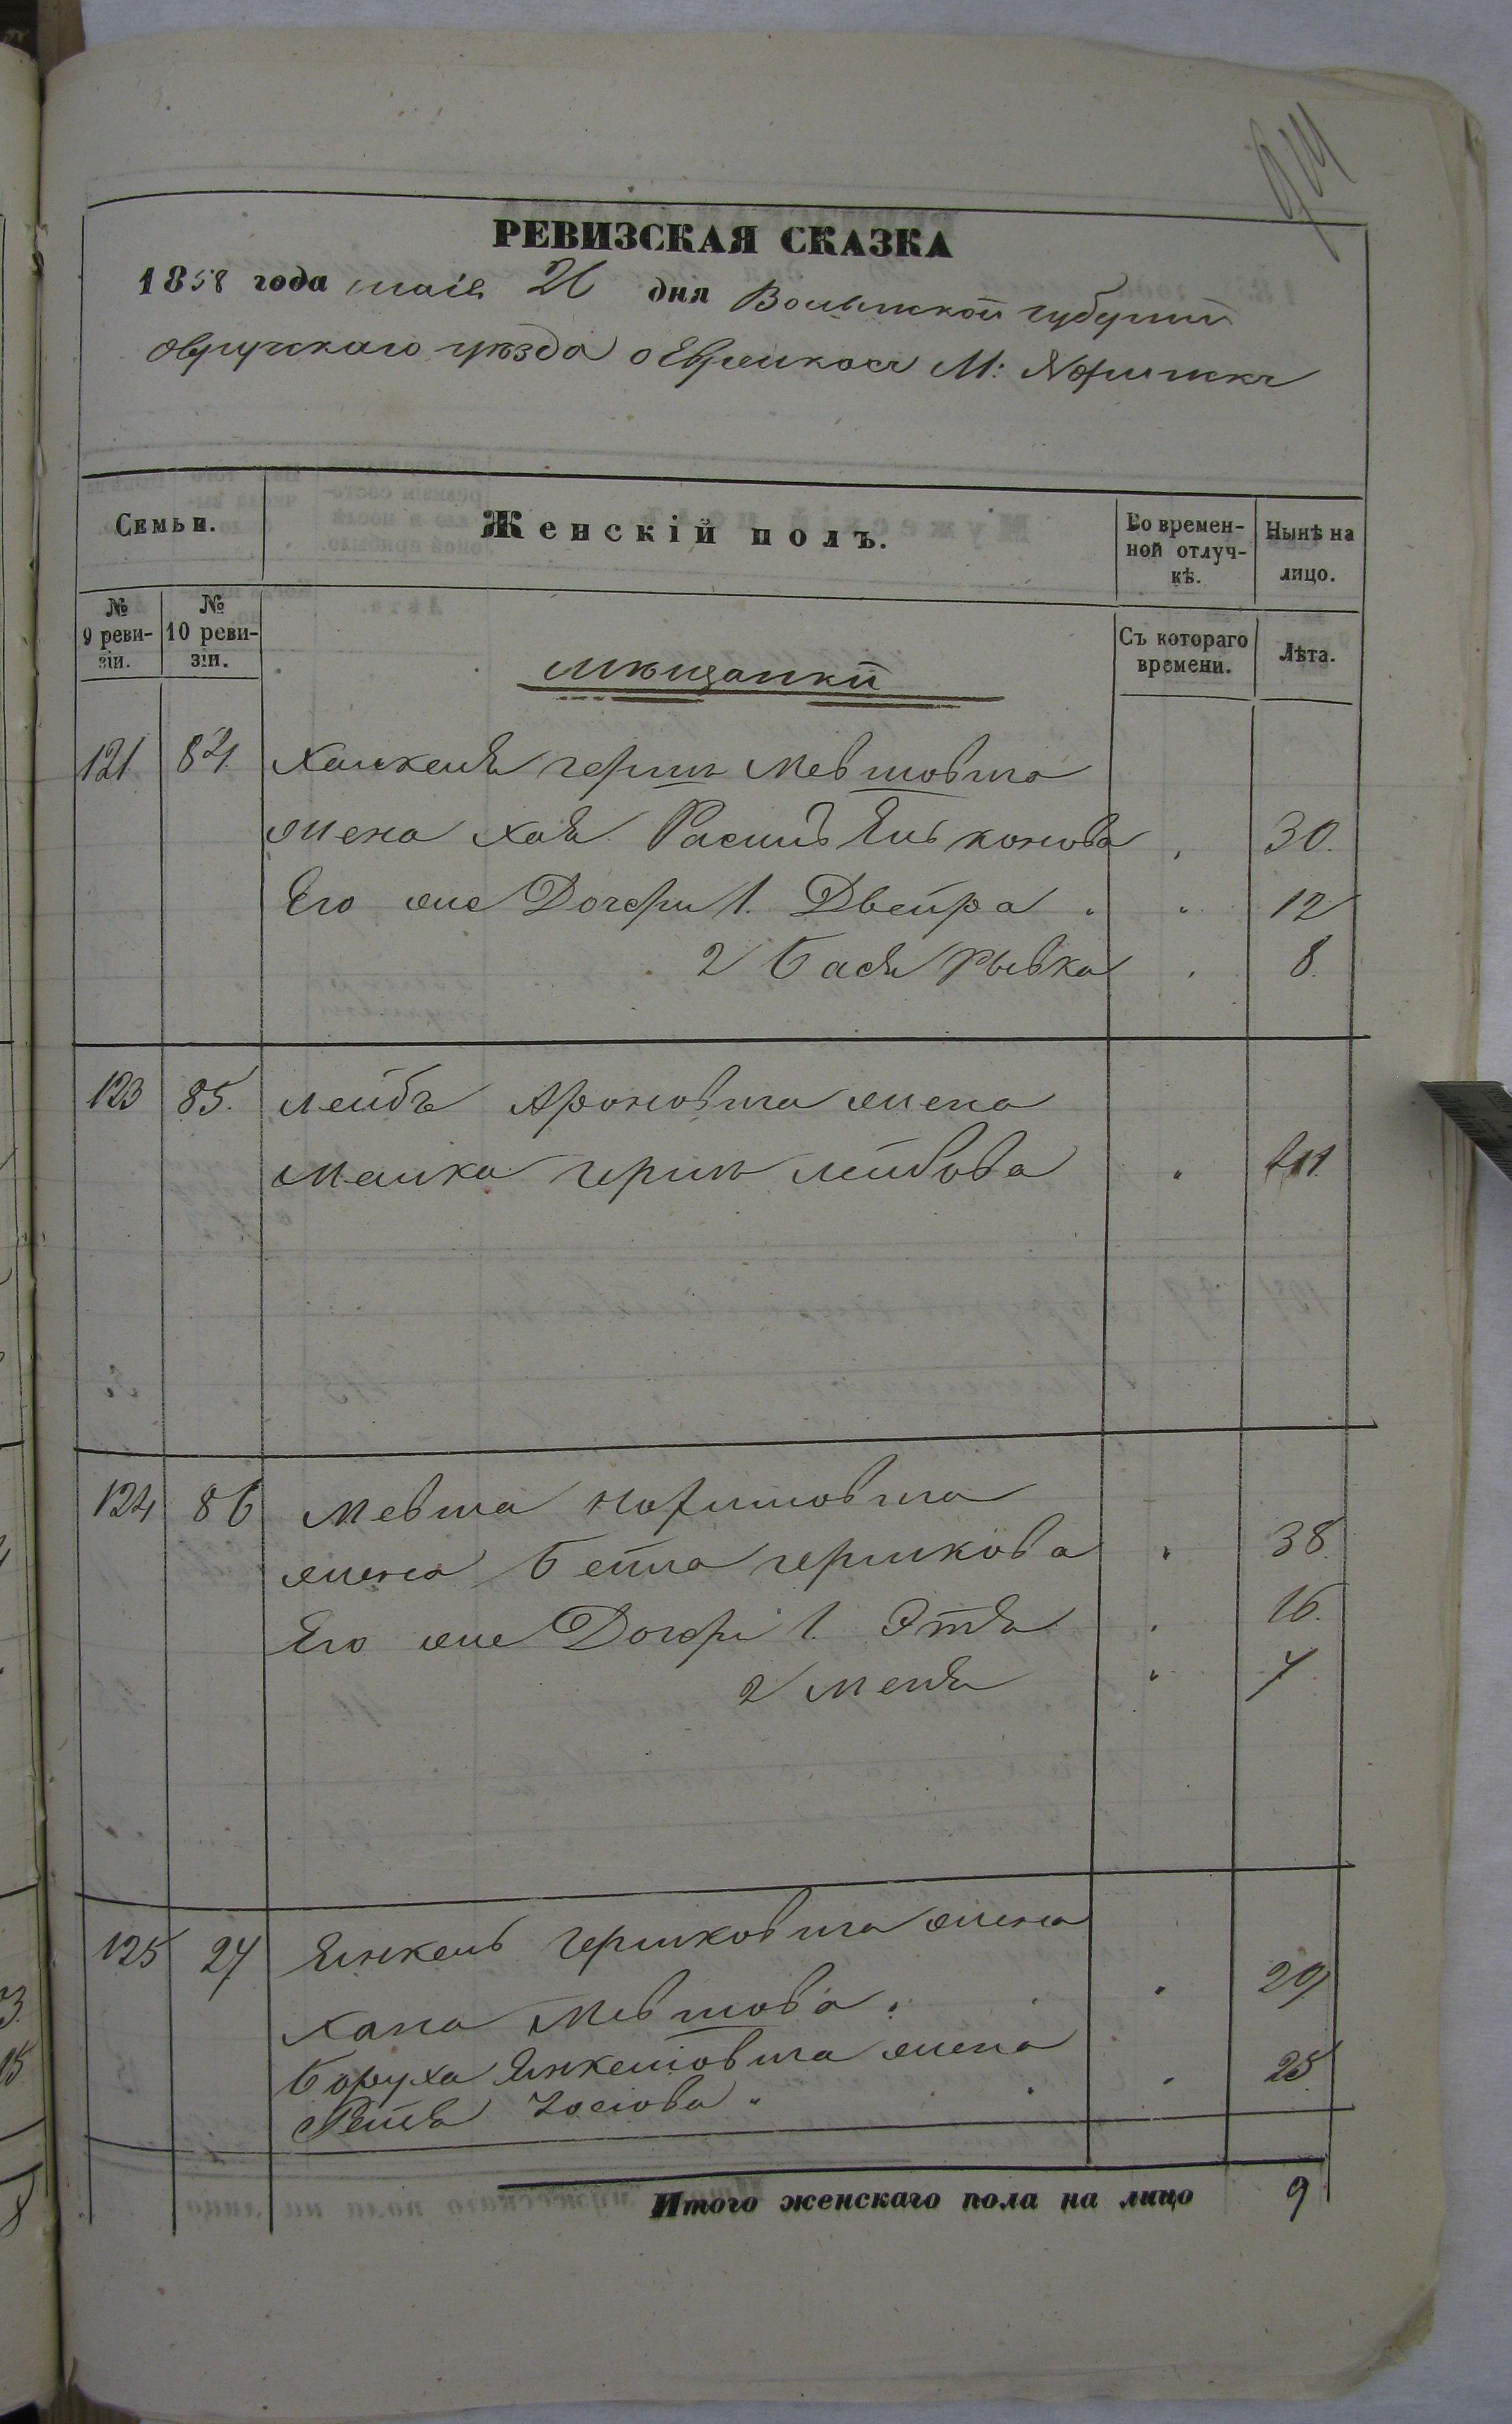 РЕВИЗСКАЯ СКАЗКА
1858 года маія 26 дня Волынской губерніи
Овручскаго уѣзда о Евреяхъ М: Норинскъ
Семьи.
Женскій полъ.
Во времен-
ной отлуч-
кѣ.
Нынѣ на
лицо.
№
9 реви-
зіи.
№
10 реви-
зіи.
Съ котораго
времени.
Лѣта.
Мѣщанки
121 84 Герша Мевшовича
жена Хая Рася Янькелова 30.
Его же Дочери 1. Двейра 12
2 Бася Рывка 8.
123 85. Лейбъ Ароновича жена
Малка Герша Лейбова 41.
124 86 Мевша
жена Бейла Гершкова 38.
Его же Дочери 1. Этя 16.
2 Меня 7
125 27 Янкель Гершковича жена
Хана Мевшова. 29
Боруха Янкелевича жена
Іосіова 25
Итого женскаго пола на лицо 9